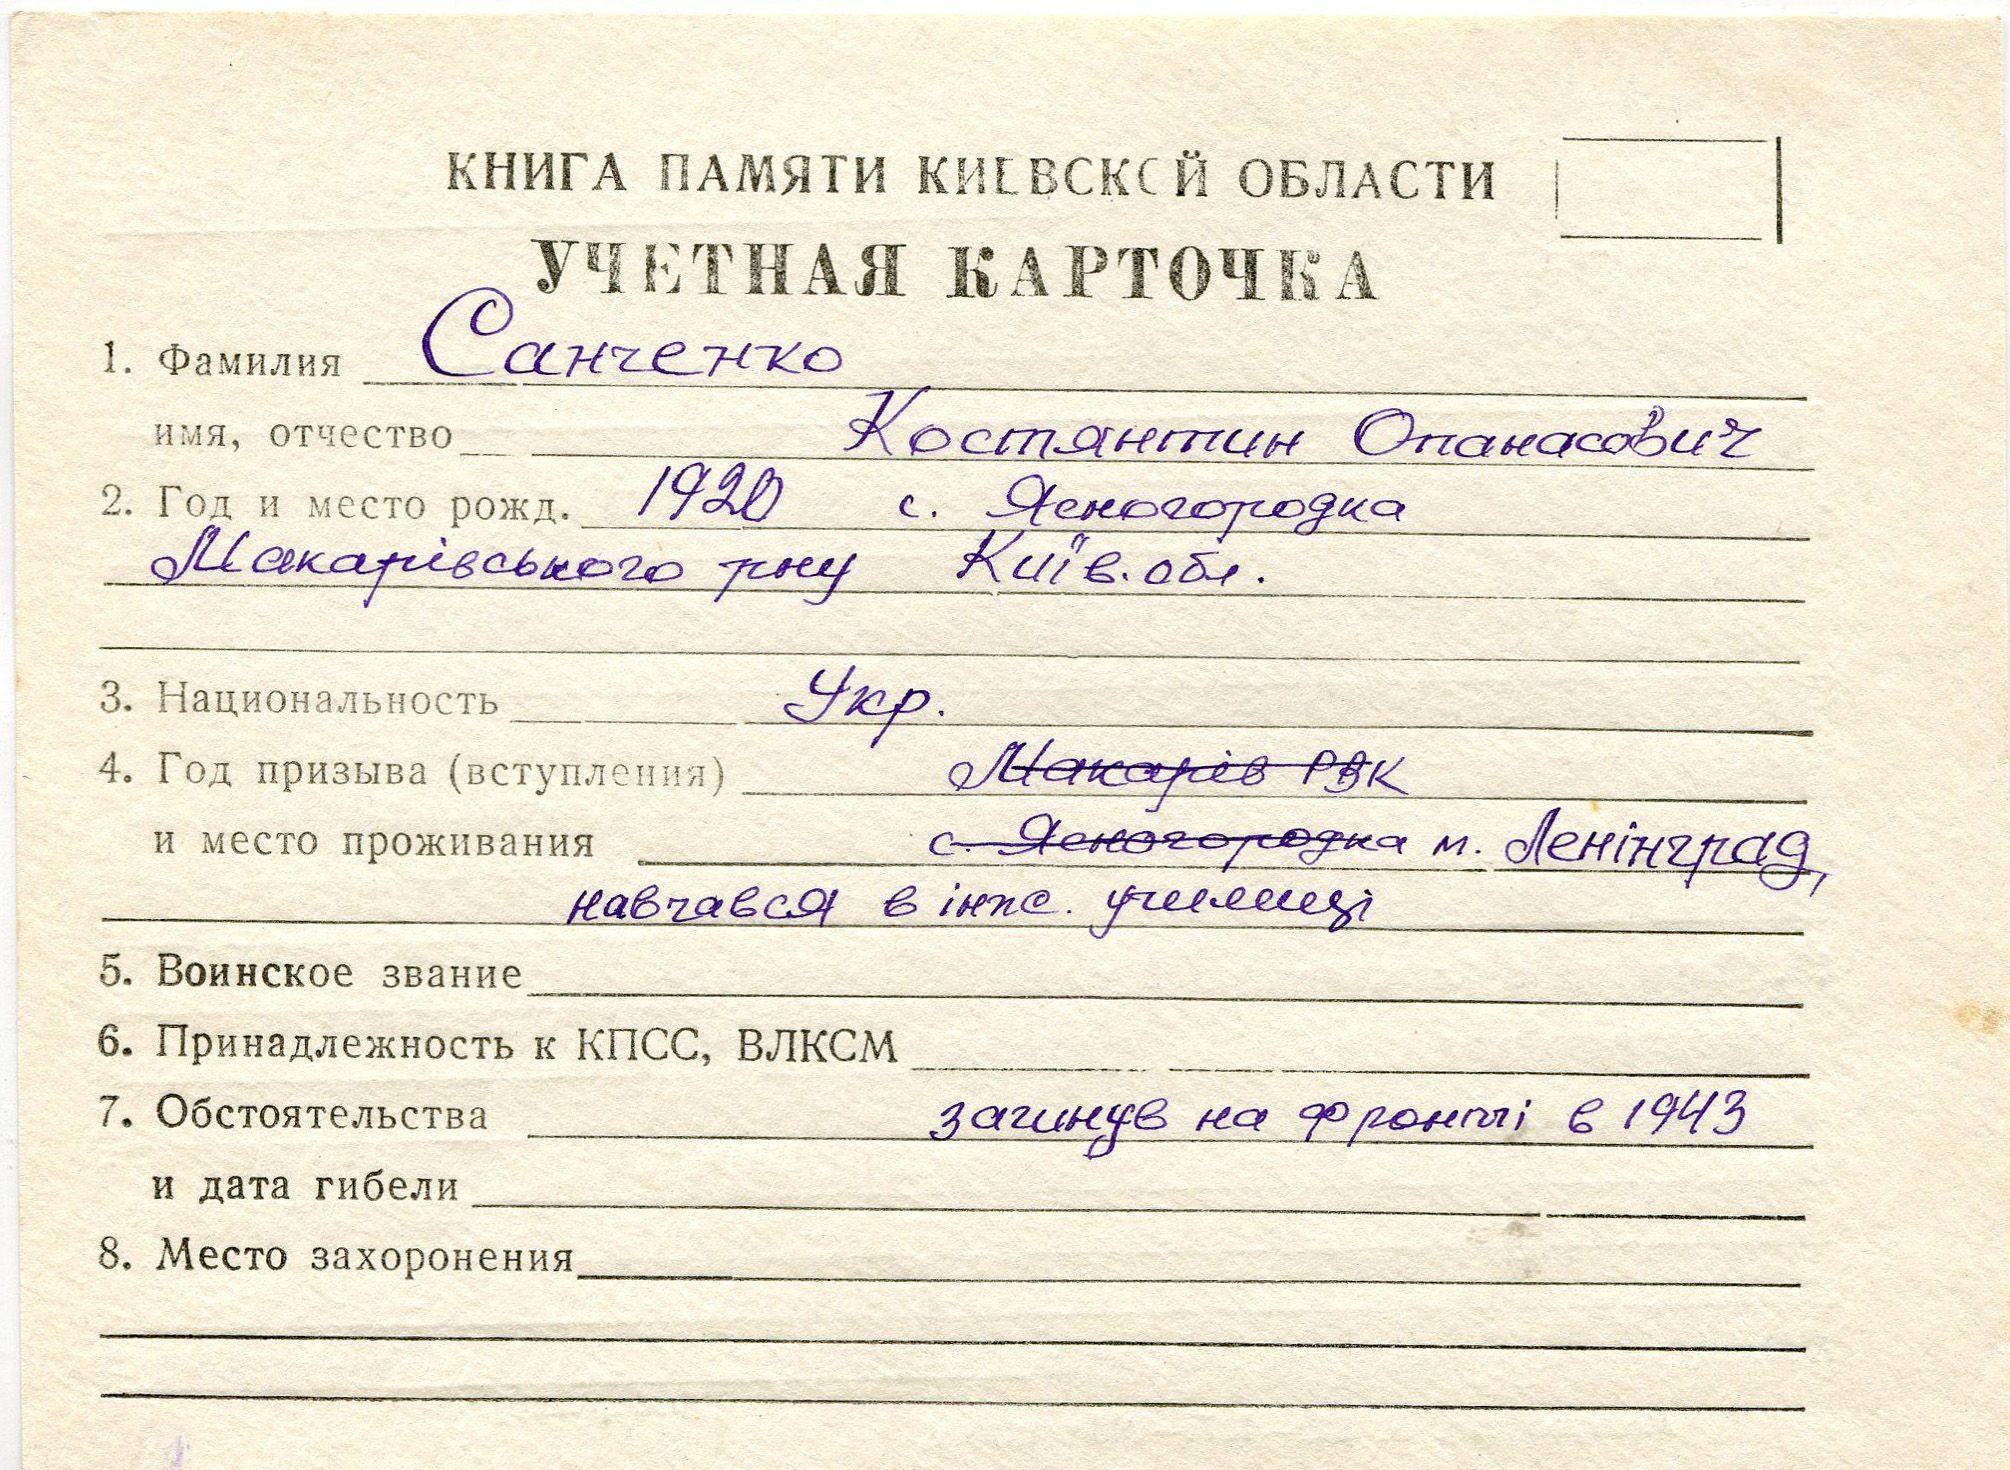 КНИГА ПАМЯТИ КИЕВСКОЙ ОБЛАСТИ
УЧЕТНАЯ КАРТОЧКА
1. Фамилия Санченко
имя, отчество Костянтин Опанасович
2. Год и место рожд. 1920 с. Ясногородка
Макарівського рну Київ. обл.
3. Национальность Укр.
4. Год призыва (вступления) Макарів РВК
и место проживания с. Ясногородка м. Ленінград,
навчався в інж. училищі
5. Воинское звание
6. Принадлежность к КПСС, ВЛКСМ
7. Обстоятельства загинув на фронті в 1943
и дата гибели
8. Место захоронения